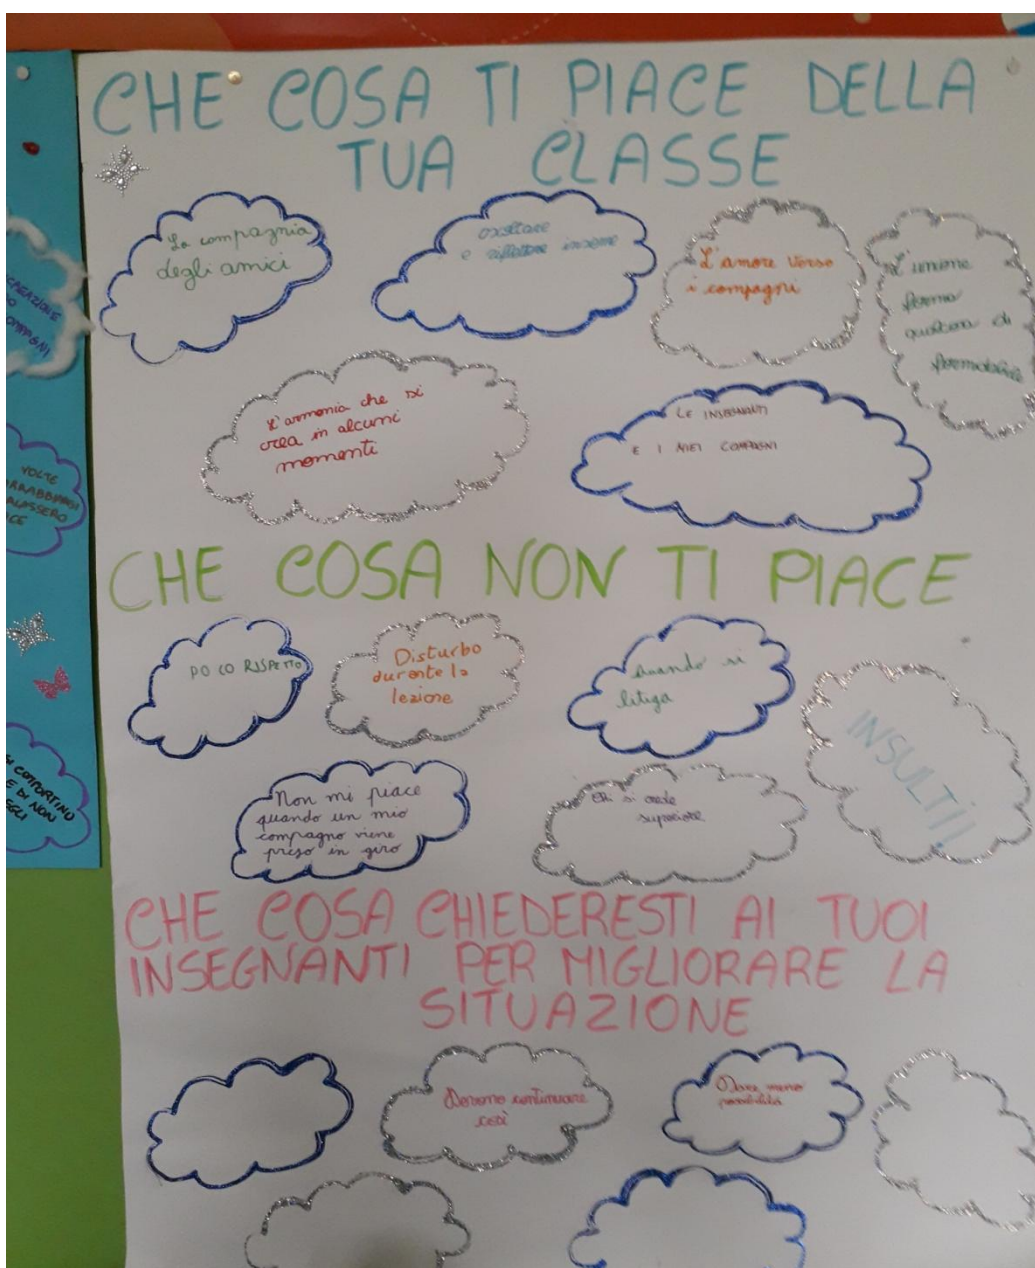 CHE COSA TI PIACE DELLA
TUA CLASSE
La compagnia
degli amici
ascoltare
e riflettere insieme
L'amore verso
i compagni
L'unione
forma
qualcosa di
formidabile
L'armonia che si
crea in alcuni
momenti
LE INSEGNANTI
E I MIEI COMPAGNI
CHE COSA NON TI PIACE
POCO RISPETTO
Disturbo
durante la
lezione
Quando si
litiga
INSULTI!
Non mi piace
quando un mio
compagno viene
preso in giro
Chi si crede
superiore
CHE COSA CHIEDERESTI AI TUOI
INSEGNANTI PER MIGLIORARE LA
SITUAZIONE
Devono continuare
così
Dare meno
possibilità
COMPAGNI
VOLTE
COMPORTINO
E DI NON